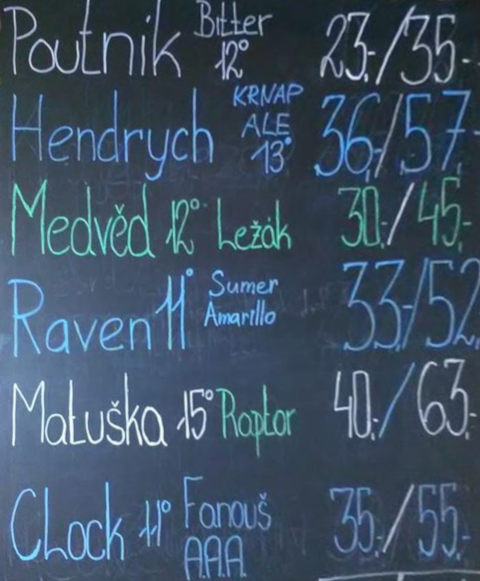 Poutník Bitter 12° 23,-/35,-
Hendrych KRNAP ALE 13° 36,-/57,-
Medvěd 12° Ležák 30,-/45,-
Raven 11° Sumer Amarillo 33,-/52
Matuška 15° Raptor 40,-/63,-
Clock 11° Fanouš A.A.A. 35,-/55,-